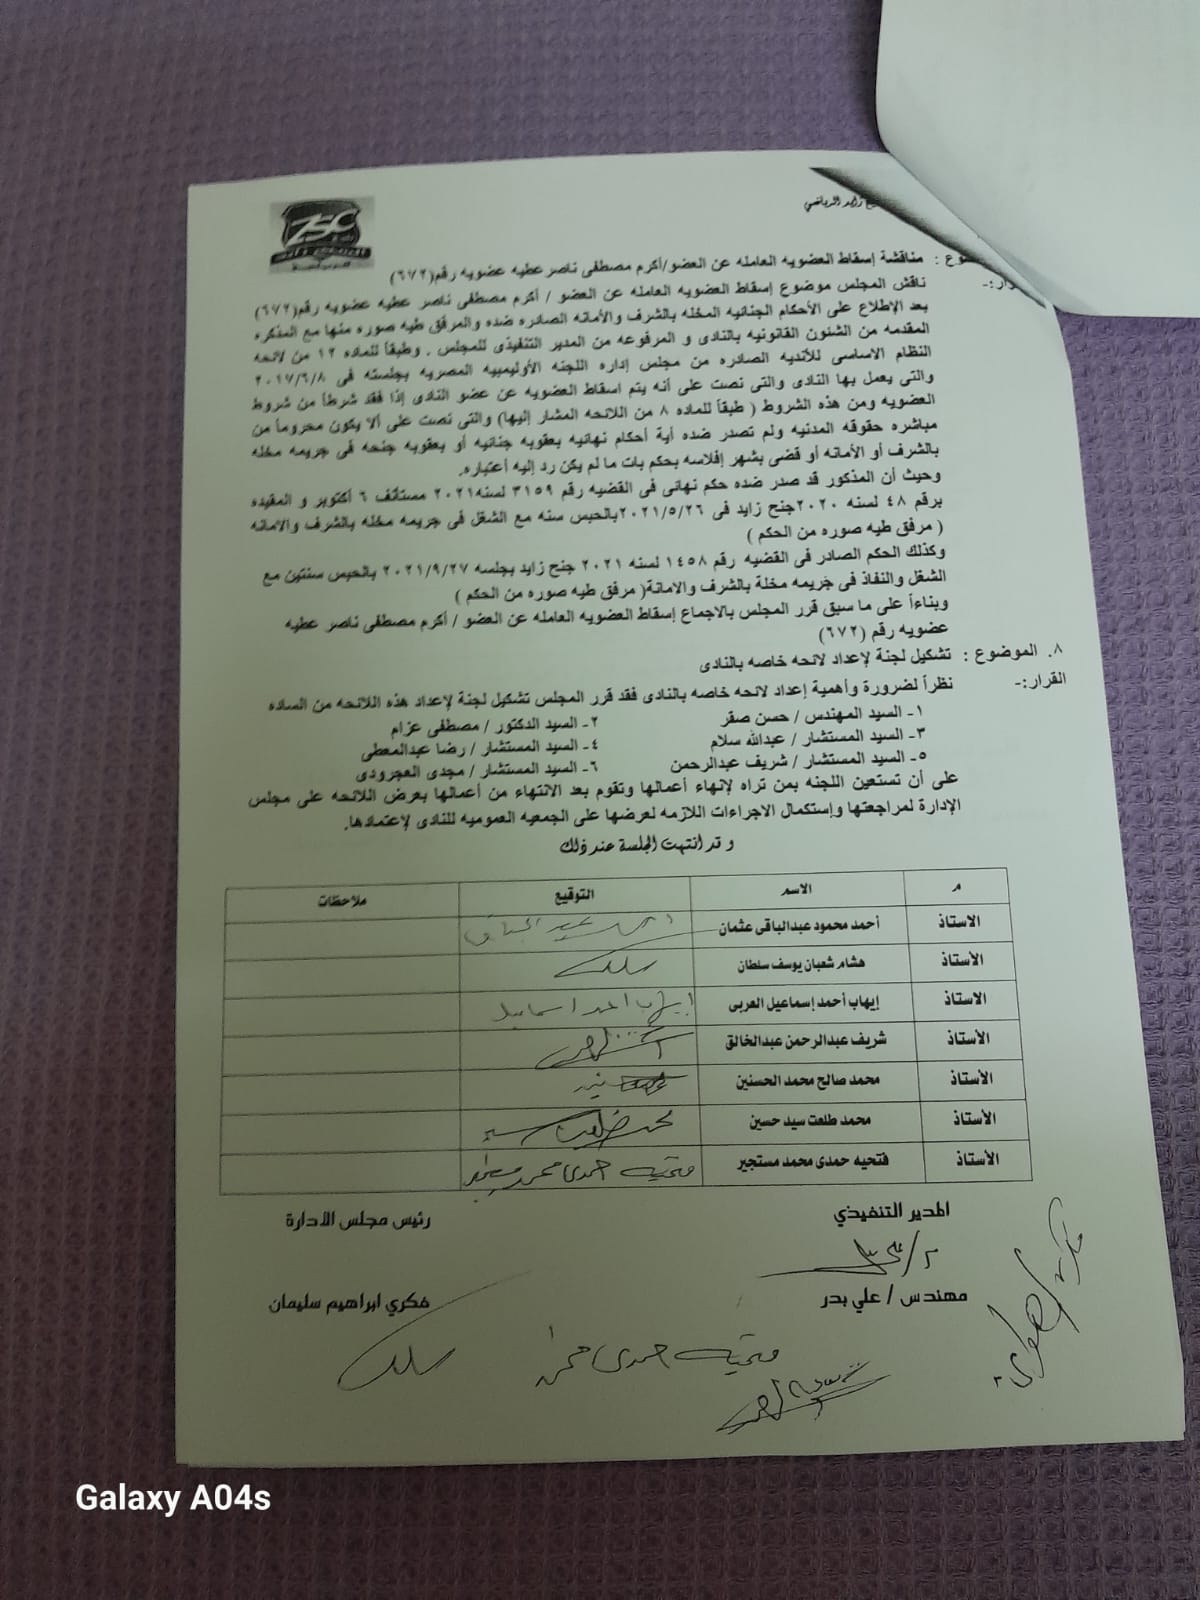 زايد الرياضي
ZSC
مناقشة إسقاط العضويه العامله عن العضو/أكرم مصطفى ناصر عطيه عضويه رقم(٦٧٢)
ناقش المجلس موضوع إسقاط العضويه العامله عن العضو / أكرم مصطفى ناصر عطيه عضويه رقم(٦٧٢)
بعد الإطلاع على الأحكام الجنائيه المخله بالشرف والأمانه الصادره ضده والمرفق طيه صوره منها مع المذكره
المقدمه من الشئون القانونيه بالنادى و المرفوعه من المدير التنفيذى للمجلس . وطبقاً للماده ١٢ من لائحه
النظام الاساسى للأنديه الصادره من مجلس إداره اللجنه الأوليمبيه المصريه بجلسته فى ٢٠١٧/٦/٨
والتى يعمل بها النادى والتى نصت على أنه يتم اسقاط العضويه عن عضو النادى إذا فقد شرطاً من شروط
العضويه ومن هذه الشروط ( طبقاً للماده ٨ من اللائحه المشار إليها) والتى نصت على ألا يكون محروماً من
مباشره حقوقه المدنيه ولم تصدر ضده أية أحكام نهائيه بعقوبه جنائيه أو بعقوبه جنحه فى جريمه مخله
بالشرف أو الأمانه أو قضى بشهر إفلاسه بحكم بات ما لم يكن رد إليه أعتباره.
وحيث أن المذكور قد صدر ضده حكم نهائى فى القضيه رقم ٣١٥٩ لسنه٢٠٢١ مستأنف ٦ أكتوبر و المقيده
برقم ٤٨ لسنه ٢٠٢٠جنح زايد فى ٢٠٢١/٥/٢٦بالحبس سنه مع الشغل فى جريمه مخله بالشرف والامانه
( مرفق طيه صوره من الحكم )
وكذلك الحكم الصادر فى القضيه رقم ١٤٥٨ لسنه ٢٠٢١ جنح زايد بجلسه ٢٠٢١/٩/٢٧ بالحبس سنتين مع
الشغل والنفاذ فى جريمه مخلة بالشرف والامانة( مرفق طيه صوره من الحكم )
وبناءاً على ما سبق قرر المجلس بالاجماع إسقاط العضويه العامله عن العضو / أكرم مصطفى ناصر عطيه
عضويه رقم (٦٧٢)
٨. الموضوع : تشكيل لجنة لإعداد لائحه خاصه بالنادى
القرار:- نظراً لضرورة وأهمية إعداد لائحه خاصه بالنادى فقد قرر المجلس تشكيل لجنة لإعداد هذه اللائحه من الساده
١- السيد المهندس / حسن صقر ٢- السيد الدكتور / مصطفى عزام
٣- السيد المستشار / عبدالله سلام ٤- السيد المستشار / رضا عبدالمعطى
٥- السيد المستشار / شريف عبدالرحمن ٦- السيد المستشار / مجدى العجرودى
على أن تستعين اللجنه بمن تراه لإنهاء أعمالها وتقوم بعد الانتهاء من أعمالها بعرض اللائحه على مجلس
الإدارة لمراجعتها وإستكمال الاجراءات اللازمه لعرضها على الجمعيه العموميه للنادى لإعتمادها.
و تد انتهت الجلسة عند ذلك
م الاسم التوقيع ملاحظات
الاستاذ أحمد محمود عبدالباقى عثمان
الأستاذ هشام شعبان يوسف سلطان
الاستاذ إيهاب أحمد إسماعيل العربى ايهاب احمد اسماعيل
الأستاذ شريف عبدالرحمن عبدالخالق
الأستاذ محمد صالح محمد الحسنين
الأستاذ محمد طلعت سيد حسين محمد طلعت سيد
الأستاذ فتحيه حمدى محمد مستجير فتحيه حمدى محمد مستجير
المدير التنفيذي رئيس مجلس الادارة
مهندس / علي بدر فكري ابراهيم سليمان
فتحيه حمدى محمد
Galaxy A04s